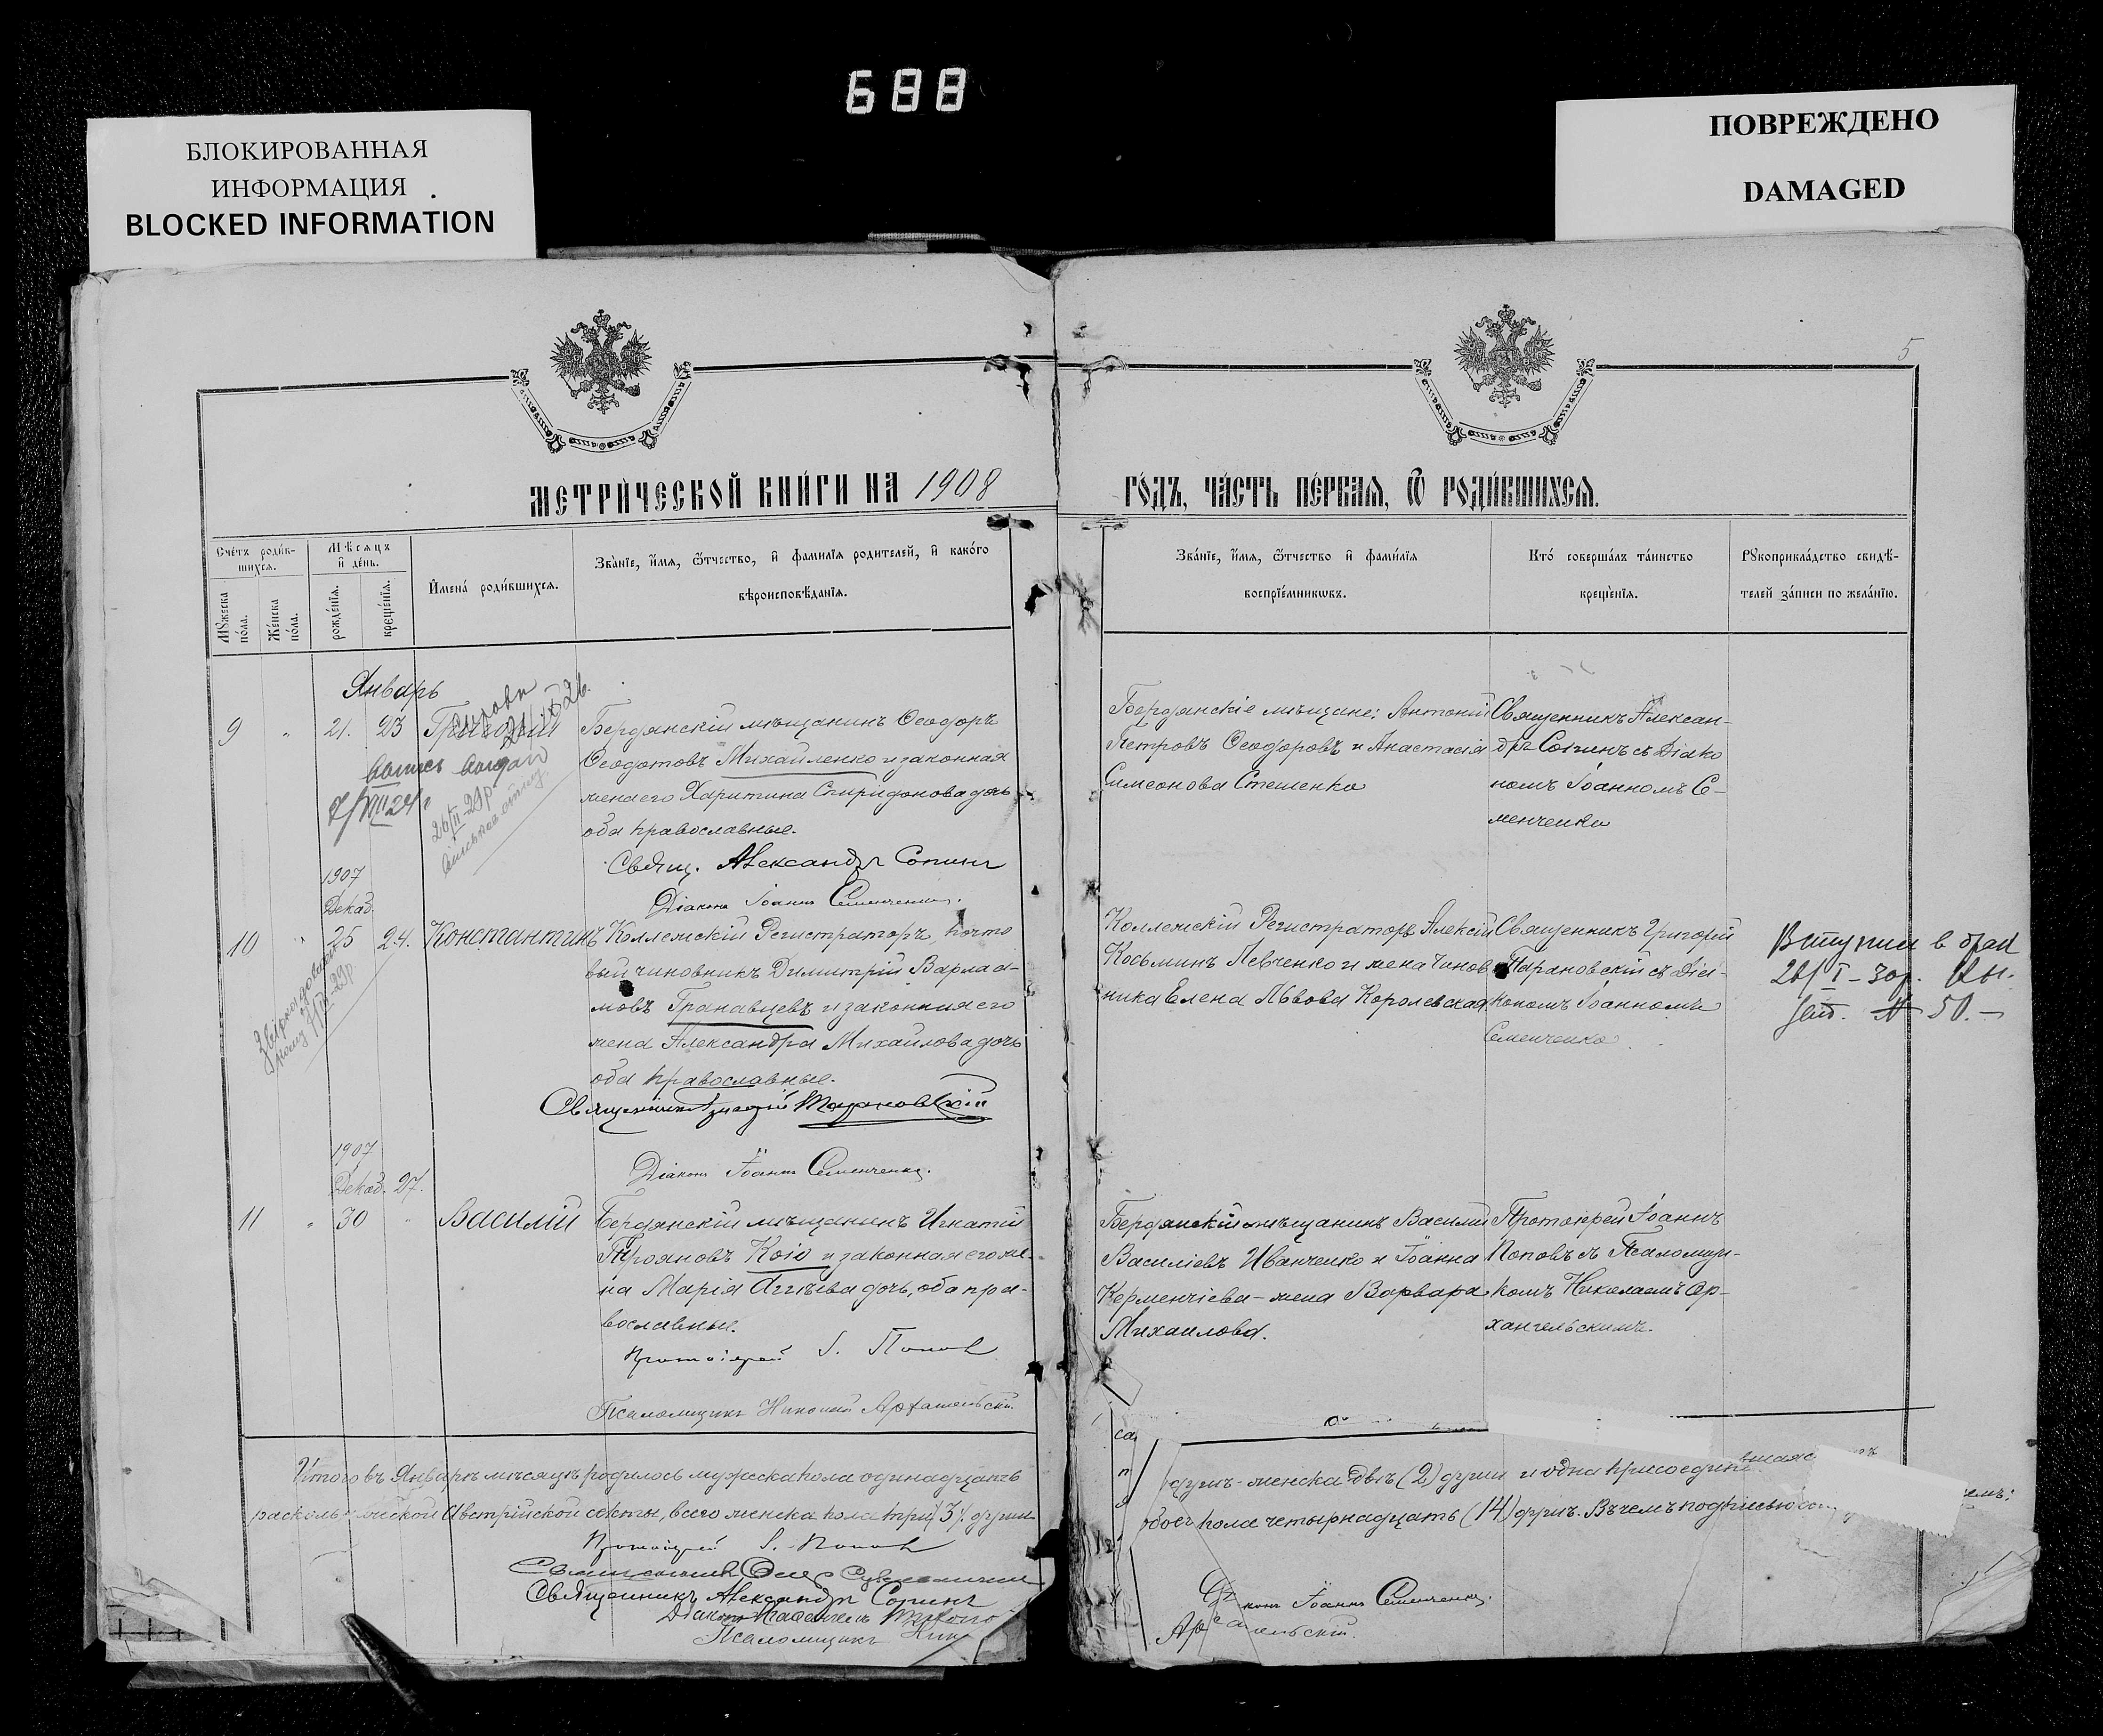 688
БЛОКИРОВАННАЯ
ИНФОРМАЦИЯ
BLOCKED INFORMATION
ПОВРЕЖДЕНО
DAMAGED
5
МЕТРИ́ЧЕСКОЙ КНИ́ГИ НА 1908
ГО́ДЪ, ЧА́СТЬ ПЕ́РВАѦ, Ѿ РОДИ́ВШИХСѦ.
Счетъ роди́в-
шихсѧ.
Мꙋжеска по́ла.
Же́нска по́ла.
Мѣсѧцъ
и҆ де́нь.
рожде́нїѧ.
креще́нїѧ.
И҆мена́ роди́вшихсѧ.
Зва́нїе, и҆́мѧ, ѻ҆́тчество, и҆ фамилїѧ родителей, и҆ како́го
вѣроисповѣ́данїѧ.
Зва́нїе, и҆́мѧ, ѻ҆́тчество и҆ фами́лїѧ
воспрїе́мникѡвъ.
Кто̀ соверша́лъ та́инство
креще́нїѧ.
Рꙋкоприкла́дство свидѣ́-
телей за́писи по жела́нїю.
Январь
9 " 21. 23 Григорій
Бердянскій мѣщанинъ Ѳеодоръ
Ѳеодотовъ Михайленко и законная
жена его Харитина Спиридонова дочь
оба православные.
Свящ. Александръ Сопинъ
Діаконъ Іоаннъ Семенченко.
Бердянскіе мѣщане: Антоній
Петровъ Ѳеодоровъ и Анастасія
Симеонова Стешенко
Священникъ Алексан-
дръ Сопинъ съ Діако
номъ Іоанномъ Се-
менченко
1907
Декаб.
10 " 25 24. Константинъ
Коллежскій Регистраторъ, почто
вый чиновникъ Димитрій Варлаа-
мовъ Гранавцевъ и законная его
жена Александра Михайлова дочь
оба православные.
Священникъ Григорій Тарановскій
Діаконъ Іоаннъ Семенченко.
Коллежскій Регистраторъ Алексій
Косьминъ Левченко и жена Чинов
ника Елена Львова Королевская
Священникъ Григорій
Тарановскій съ Діа-
кономъ Іоанномъ
Семенченко
Вступил в брак
28/I-30г.
№ 50.-
1907
Декаб. 27.
11 " 30 " Василій
Бердянскій мѣщанинъ Игнатій
Трояновъ Койо и законная его же-
на Марія Аггѣева дочь, оба пра-
вославные.
Протоіерей І. Поповъ
Псаломщикъ Николай Архангельскій.
Бердянскій мѣщанинъ Василій
Василіевъ Иванченко и Іоанна
Керменчіева - жена Варвара
Михаилова.
Протоіерей Іоаннъ
Поповъ съ Псаломщи-
комъ Николаемъ Ар-
хангельскимъ.
Итого въ Январѣ мѣсяцѣ родилось мужеска пола одинадцать
душъ - женска двѣ (2) души и одна присоединившаяся
раскольнической Австрійской секты, всего женска пола три (3) души
обоего пола четырнадцать (14) душъ. Въ чемъ подписью
Протоіерей І. Поповъ
Священникъ Александръ Сопинъ
Діаконъ Іоаннъ Семенченко.
Псаломщикъ Ник
Архангельскій.